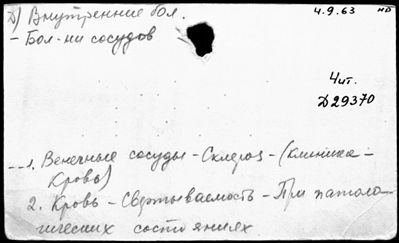 Д) Внутренние бол. 4.9.63 нд
- Бол-ни сосудов
Чит.
Д29370
1. Венечные сосуды - Склероз - (клиника -
Кровь)
2. Кровь - Свертываемость - При патоло-
гических состояниях.